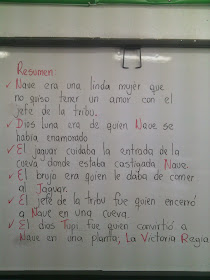 Resumen:
✓ Nave era una linda mujer que
no quiso tener un amor con el
jefe de la tribu.
✓ Dios luna era de quien Nave se
había enamorado
✓ El jaguar cuidaba la entrada de la
cueva donde estaba castigada Nave.
✓ El brujo era quien le daba de comer
al Jaguar.
✓ El jefe de la tribu fue quien encerró
a Nave en una cueva.
✓ El dios Tupi fue quien convirtió a
Nave en una planta, La Victoria Regia